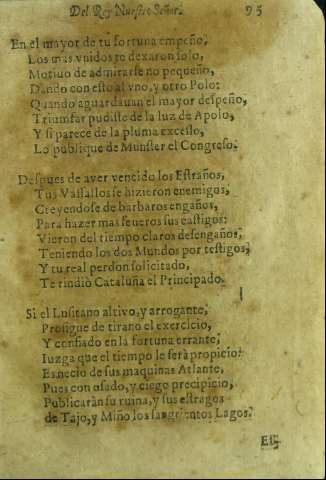 Del Rey Nuestro Señor. 95
En el mayor de tu fortuna empeño,
Los mas vnidos te dexaron solo,
Motiuo de admirarse no pequeño,
Dando con esto al vno, y otro Polo:
Quando aguardauan el mayor despeño,
Triumfar pudiste de la luz de Apolo,
Y si parece de la pluma excesso,
Lo publique de Munster el Congreso.
Despues de aver vencido los Estraños,
Tus Vassallos se hizieron enemigos,
Creyendose de barbaros engaños,
Para hazer mas seueros sus castigos:
Vieron del tiempo claros desengaños,
Teniendo los dos Mundos por testigos,
Y tu real perdon solicitado,
Te rindiò Cataluña el Principado.
Si el Lusitano altivo, y arrogante,
Prosigue de tirano el exercicio,
Y confiado en la fortuna errante,
Iuzga que el tiempo le serà propicio:
Es necio de sus maquinas Atlante,
Pues con osado, y ciego precipicio,
Publicaràn su ruina, y sus estragos
de Tajo, y Miño los sangrientos Lagos.